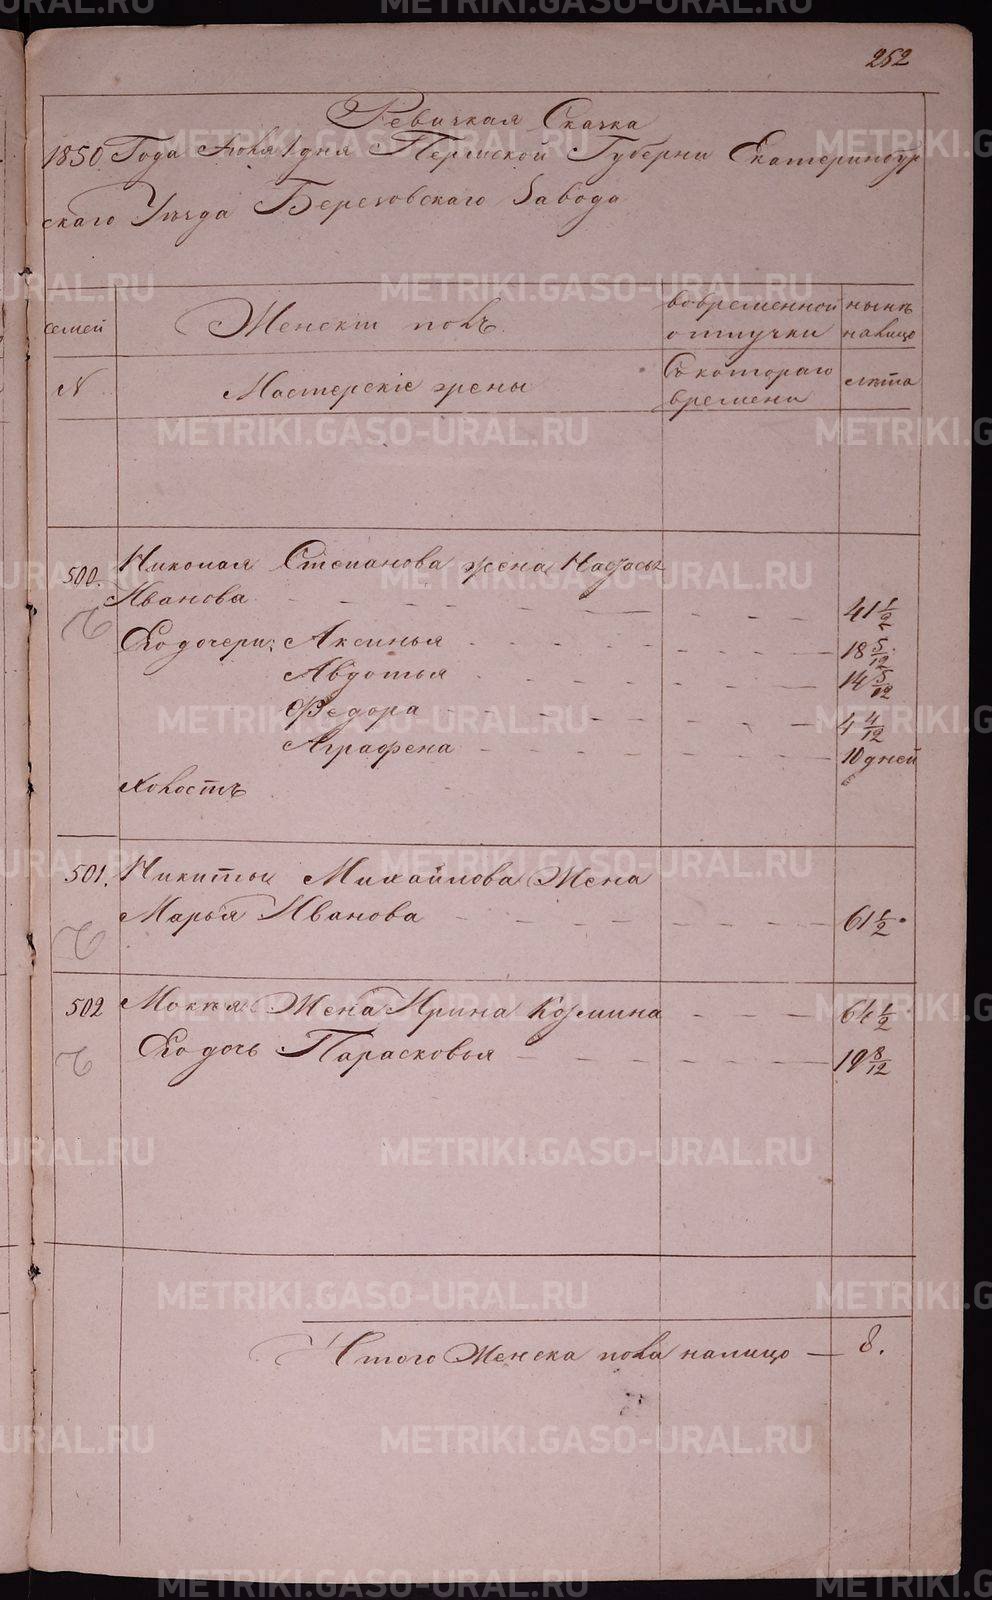 252
Ревижкая Скачка
1850 Года Июля 1 дня Пермской Губерни Екатеринбур
скаго Уѣзда Березовскаго Завода
семей
Женскiй полъ
вовременной
отлучки
нынѣ
налицо
N
Мастерскiе жены
Съ котораго
времени
лѣта
500. Николая Степанова жена
Иванова 41 1/2
Его дочери: Аксинья 18 5/12
Авдотья 14 5/12
Федора 4 4/12
Аграфена 10 дней
Холостъ
501. Никиты Михайлова Жена
Марья Иванова 61 1/2
502 Мокѣя Жена Ирина Козмина 64 1/2
Его дочь Парасковья 19 8/12
Итого Женска пола налицо — 8.
METRIKI.GASO-URAL.RU